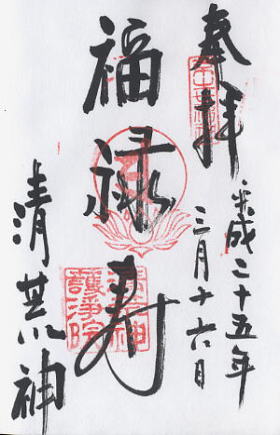 奉拝
平成二十五年
三月十六日
福禄寿
清荒神
清荒神
護浄院